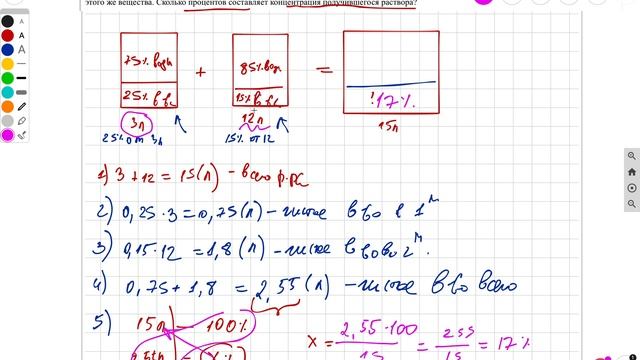 этого же вещества. Сколько процентов составляет концентрация получившегося раствора?
75% воды + 85% вод = 
25% в-ва 15% в-ва 17%
3л 12л 15л
25% от 3л 15% от 12
1) 3 + 12 = 15 (л) - всего р-ра
2) 0,25 · 3 = 0,75 (л) - чистое в-во в 1
3) 0,15 · 12 = 1,8 (л) - чистое в-во во 2
4) 0,75 + 1,8 = 2,55 (л) - чистое в-во всего
5) 15л - 100% x = 2,55 · 100 / 15 = 255 / 15 = 17%